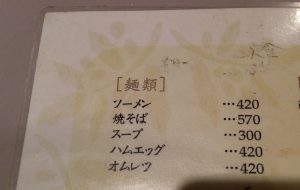 [麺類]
ソーメン …420
焼そば …570
スープ …300
ハムエッグ …420
オムレツ …420